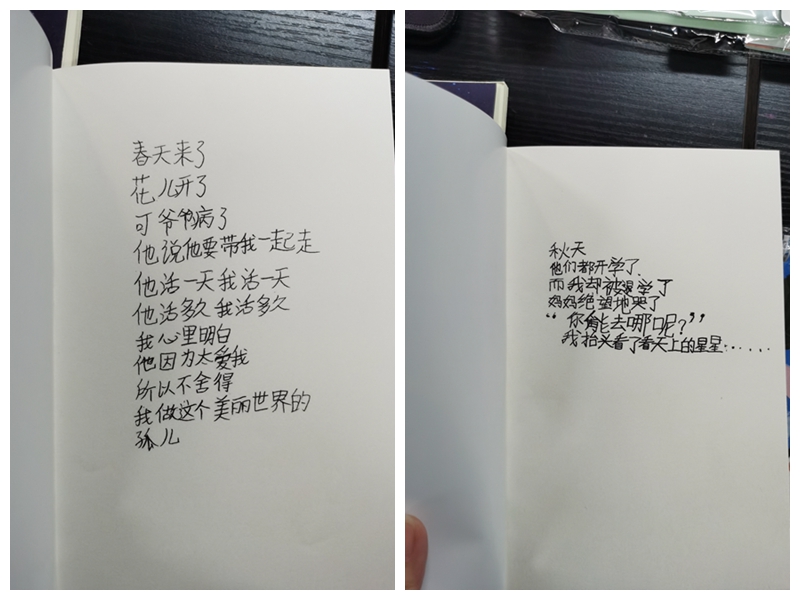 春天来了
花儿开了
可爷爷病了
他说他要带我一起走
他活一天我活一天
他活多久我活多久
我心里明白
他因为太爱我
所以不舍得
我做这个美丽世界的
孤儿
秋天
他们都开学了.
而我却被退学了
妈妈绝望地哭了
“你能去哪呢？”
我抬头看了看天上的星星······